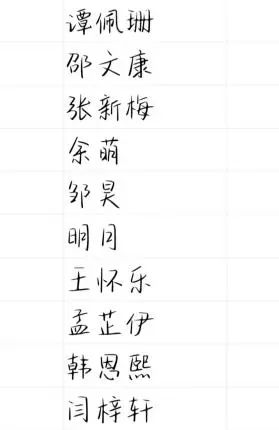 谭佩珊
邵文康
张新梅
余萌
邹昊
明月
王怀乐
孟芷伊
韩恩熙
闫梓轩